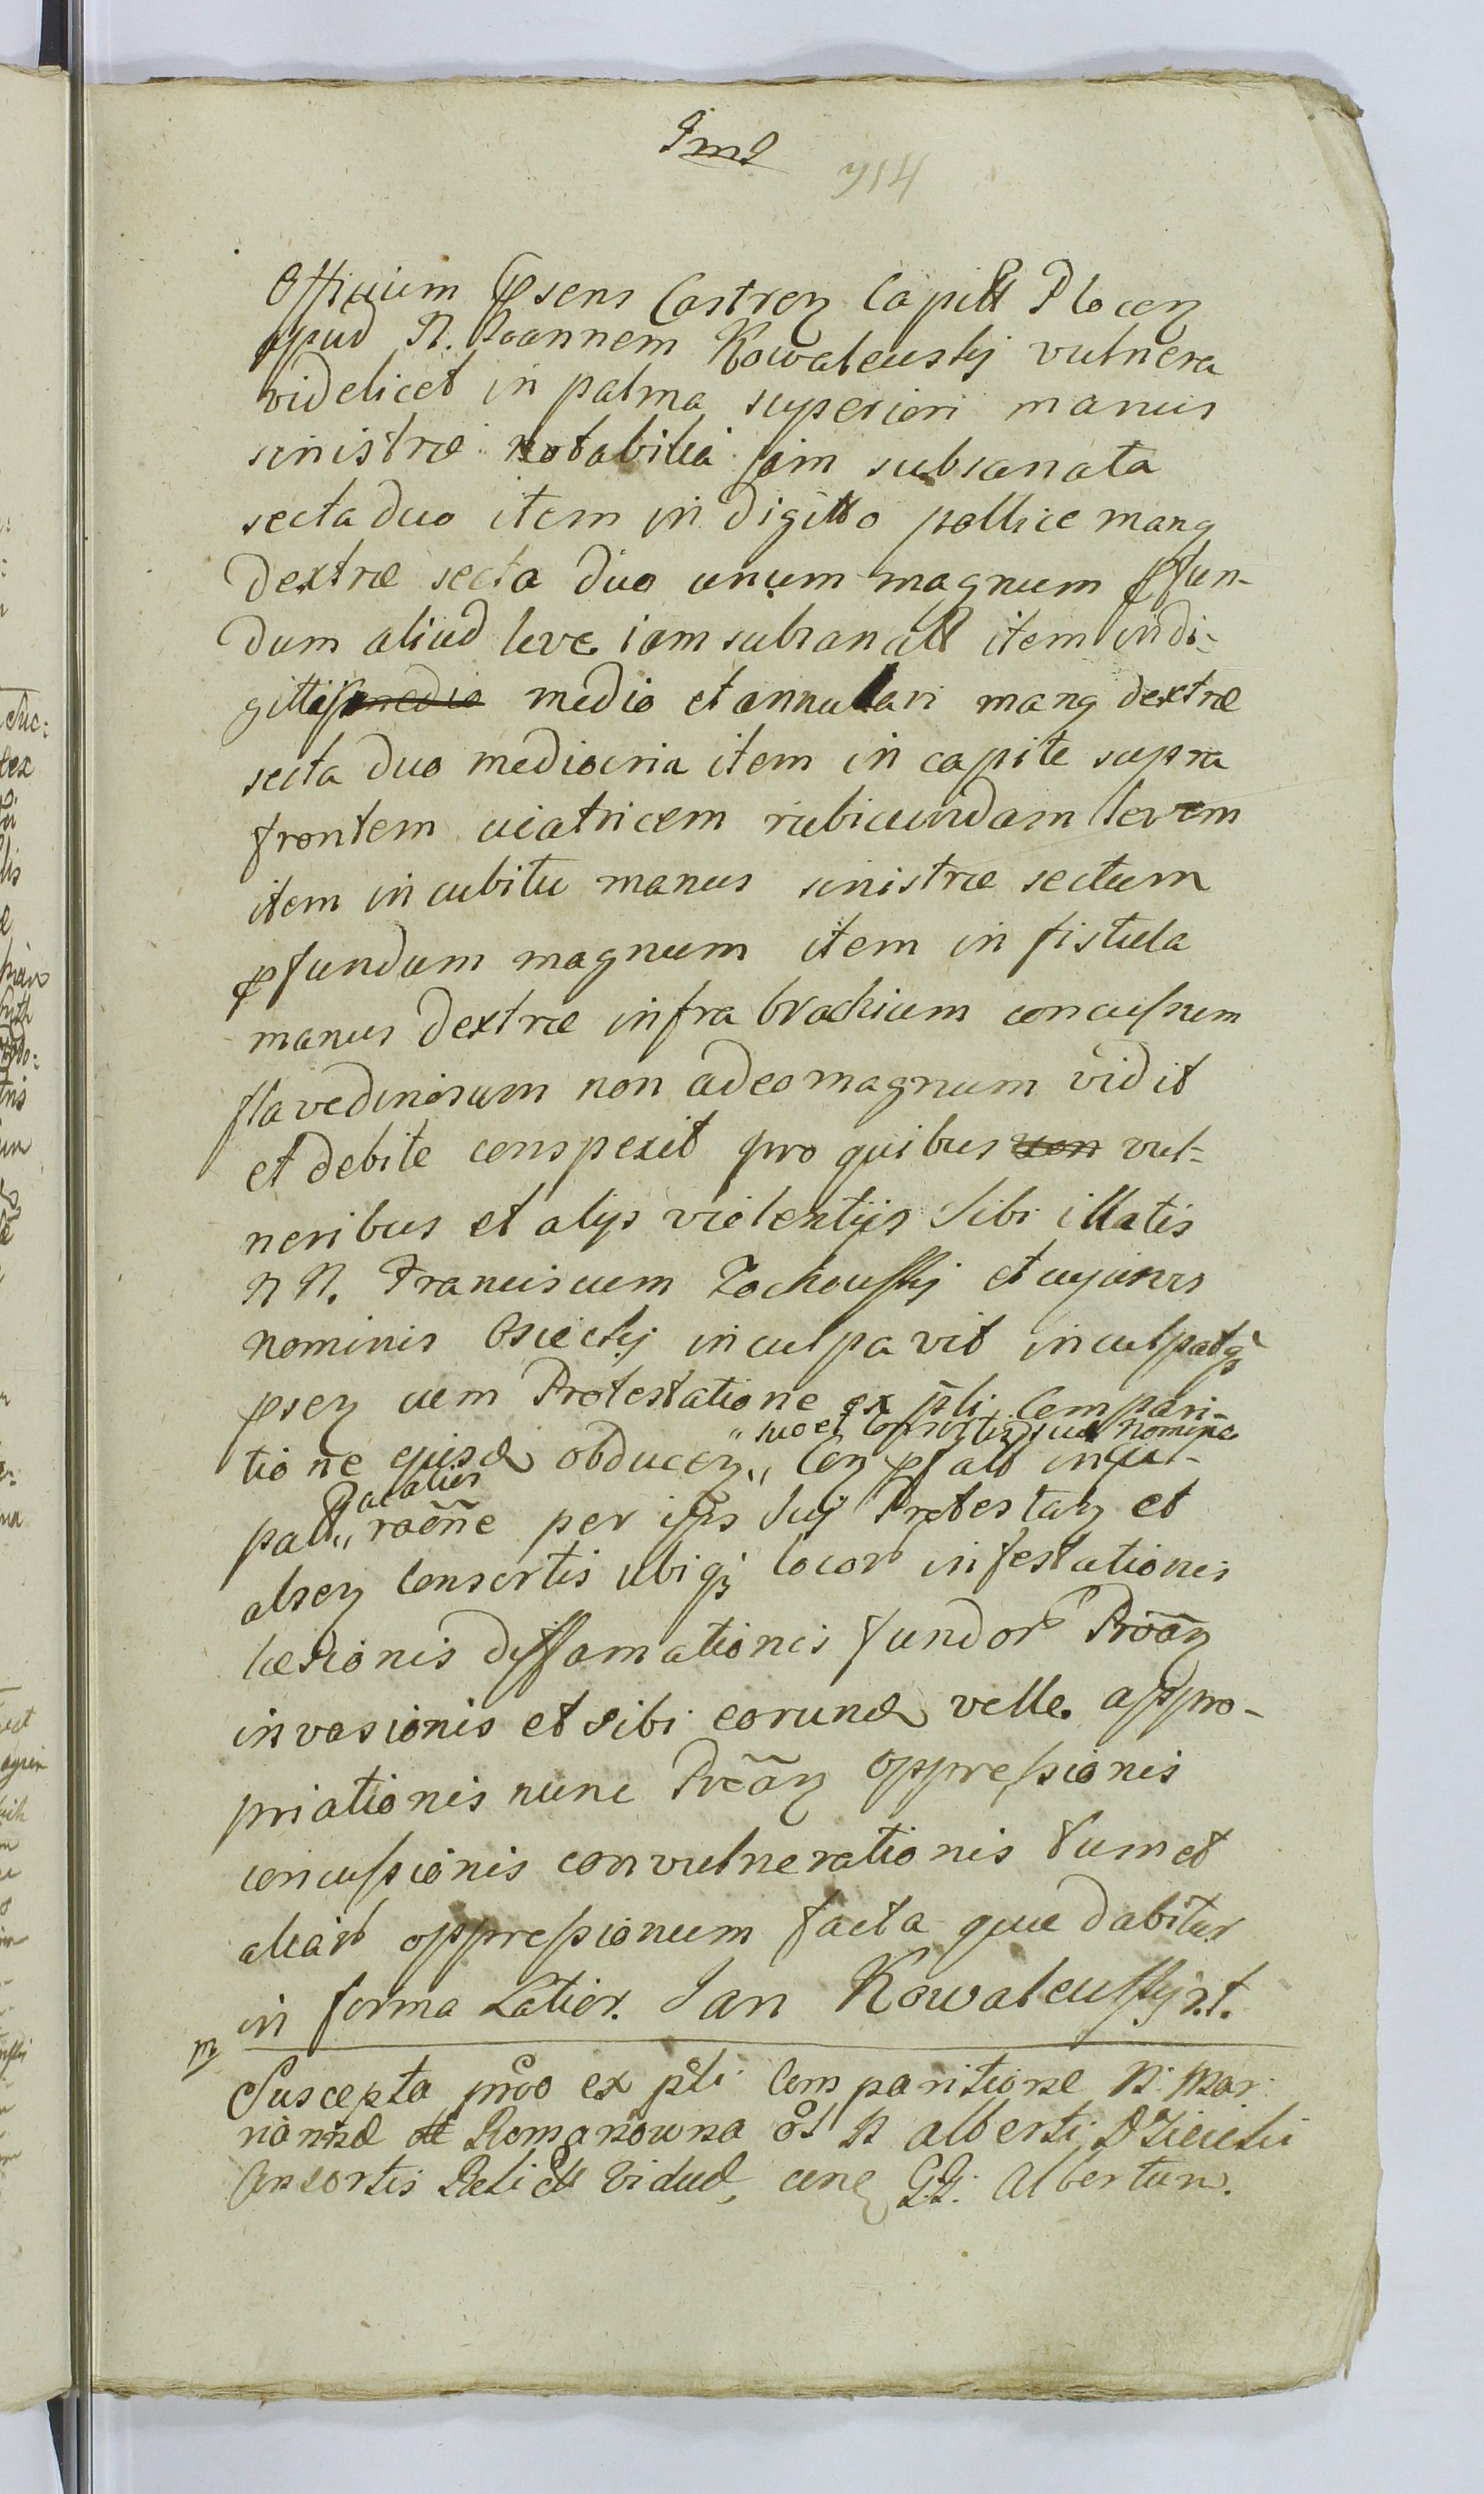 914
Officium Psens Castren Capitt Plocen
apud N. Joannem Kowalewskj vulnera
videlicet in palma superiori manus
sinistræ notabilia jam subsanata
secta duo item in digitto pollice manq
dextræ secta duo unum magnum pfun-
dum aliud leve iam subsanatt item in di-
gittis medio medio et annulari manq dextræ
secta duo mediocria item in capite supra
frontem cicatricem rubicundam levem
item in cubitu manus sinistræ sectum
pfundum magnum item in fistula
manus dextræ infra brachium concussum
flavedinosum non adeo magnum vidit
et debite conspexit pro quibus vul-
neribus et alijs violentijs sibi illatis
N N. Franciscum Zochowskj et cujusvis
nominis Osieckj inculpavit inculpatq
psen cum Protestatione ex pñti Compari-
tione ejusd obducen „ Con pfatt incul-
„ suo et Consortis suæ nomine
patt „ raõne per ips sui Protestan et
Pacatior
alsen Consortis ubiq locor infestationis
læsionis diffamationis fundor Proãn
invasionis et sibi eorund velle appro-
priationis nunc Proãn oppressionis
concussionis convulnerationis tum et
aliar oppressionum facta quæ dabitur
in forma Latior. Jan Kowalewskj
m
Suscepta prõo ex pñti Comparitione N. Mar
nannæ Romanowna ol N alberti Dzieckj
Consortis Relictt Viduæ, Albertum.